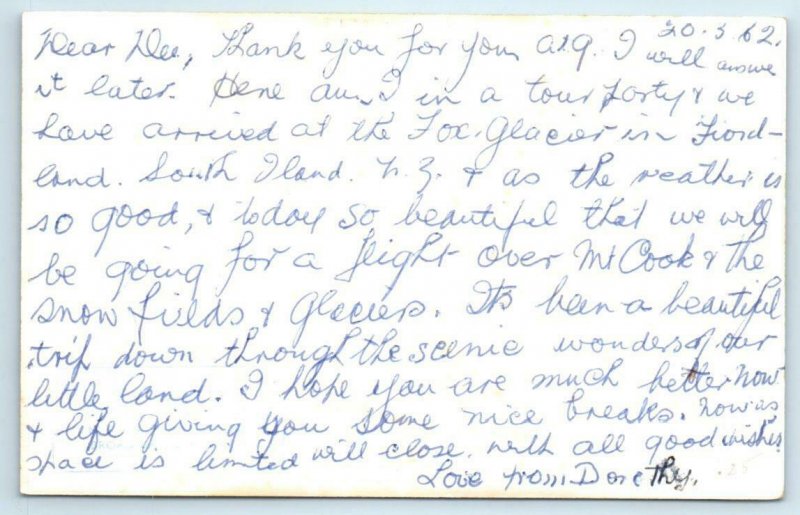 20.3.62.
Dear Dee, Thank you for your I will answer
it later. Here am I in a tour party & we
have arrived at the Fox Glacier in Fiord-
land. South Iland. N.Z. & as the weather is
so good, & today so beautiful that we will
be going for a flight over Mt Cook & the
snow fields & Glaciers. Its been a beautiful
trip down through the scenic wonders of our
little land. I hope you are much better now
& life giving you some nice breaks. Now as
space is limited will close. With all good wishes
Love from Dorothy.